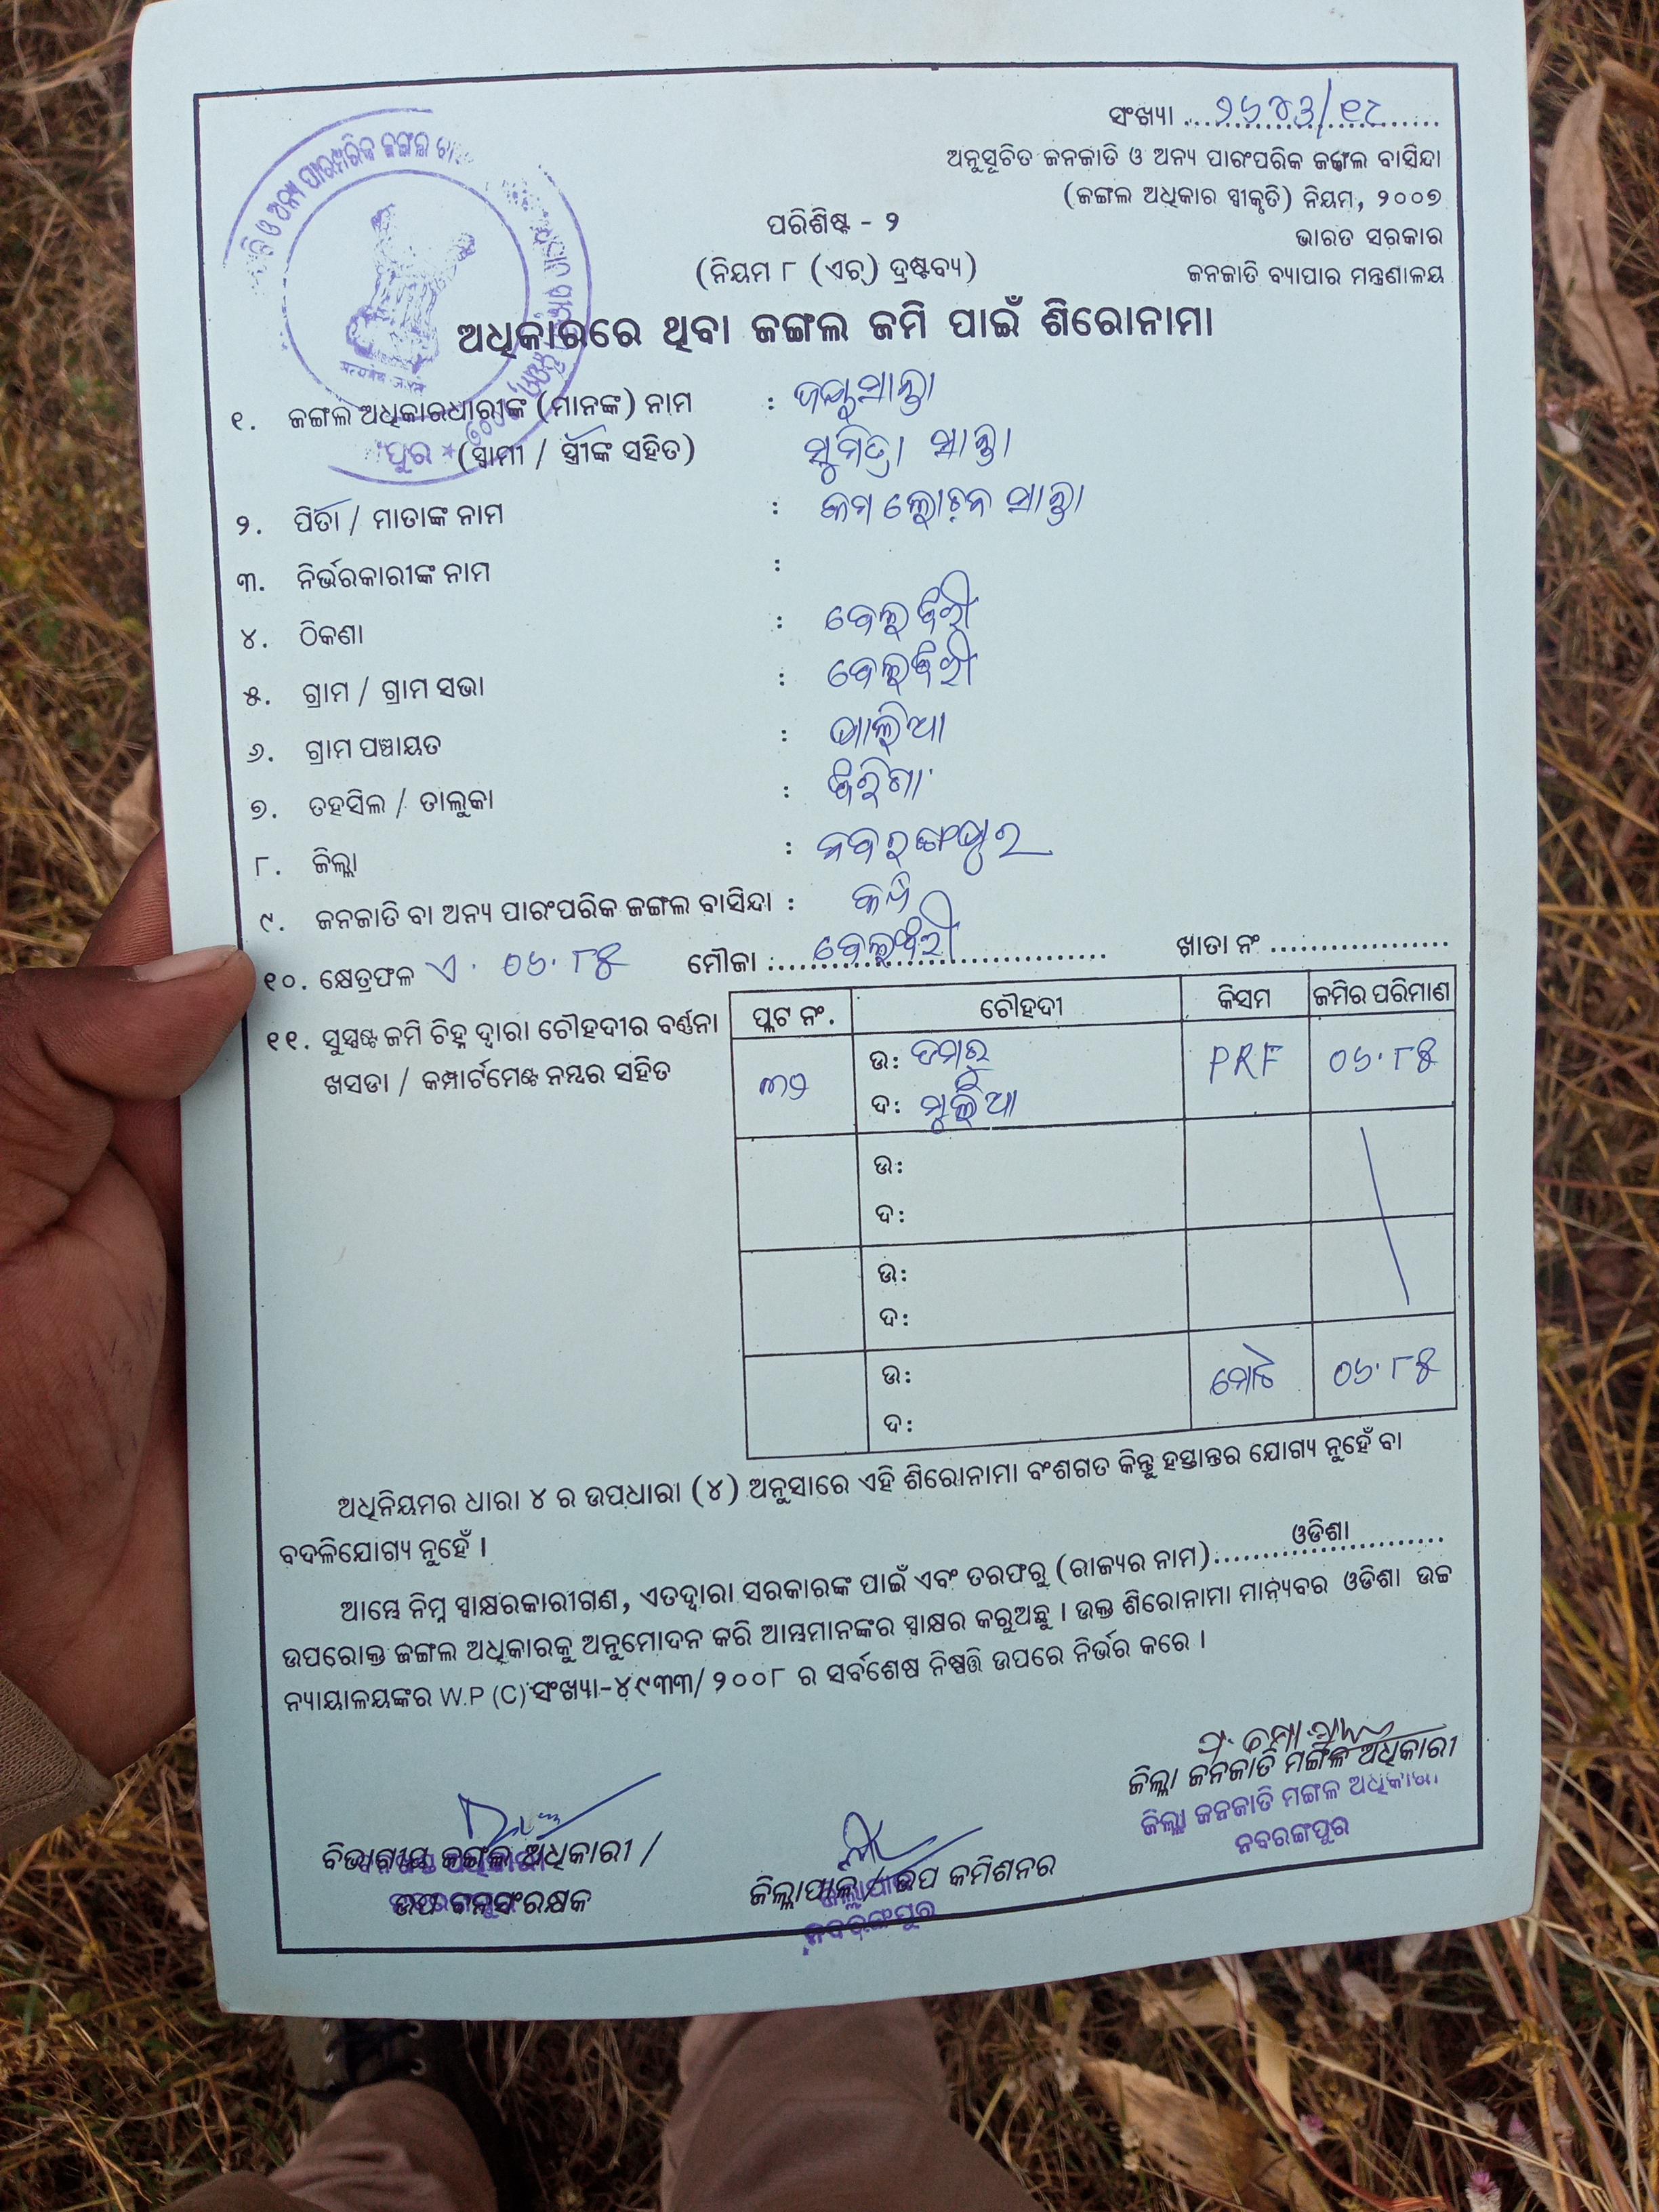 ସଂଖ୍ୟା ୨୬୪୩/୧୮
ଅନୁସୂଚିତ ଜନଜାତି ଓ ଅନ୍ୟ ପାରଂପରିକ ଜଙ୍ଗଲ ବାସିନ୍ଦା
(ଜଙ୍ଗଲ ଅଧିକାର ସ୍ୱୀକୃତି) ନିୟମ, ୨୦୦୭
ଭାରତ ସରକାର
ଜନଜାତି ବ୍ୟାପାର ମନ୍ତ୍ରଣାଳୟ
ପରିଶିଷ୍ଟ - ୨
(ନିୟମ ୮ (ଏଚ୍) ଦ୍ରଷ୍ଟବ୍ୟ)
ଅଧିକାରରେ ଥିବା ଜଙ୍ଗଲ ଜମି ପାଇଁ ଶିରୋନାମା
୧. ଜଙ୍ଗଲ ଅଧିକାରଧାରୀଙ୍କ (ମାନଙ୍କ) ନାମ : ସାନ୍ତା
(ସ୍ୱାମୀ / ସ୍ତ୍ରୀଙ୍କ ସହିତ) ସୁମିତ୍ରା ସାନ୍ତା
୨. ପିତା / ମାତାଙ୍କ ନାମ : କମ ଲୋଚନ ସାନ୍ତା
୩. ନିର୍ଭରକାରୀଙ୍କ ନାମ :
୪. ଠିକଣା :
୫. ଗ୍ରାମ / ଗ୍ରାମ ସଭା :
୬. ଗ୍ରାମ ପଞ୍ଚାୟତ :
୭. ତହସିଲ / ତାଲୁକା : ଝରିଗାଁ
୮. ଜିଲ୍ଲା : ନବରଙ୍ଗପୁର
୯. ଜନଜାତି ବା ଅନ୍ୟ ପାରଂପରିକ ଜଙ୍ଗଲ ବାସିନ୍ଦା :
୧୦. କ୍ଷେତ୍ରଫଳ ଏ. ୦୬.୮୫ ମୌଜା : ଖାତା ନଂ
୧୧. ସୁସ୍ପଷ୍ଟ ଜମି ଚିହ୍ନ ଦ୍ୱାରା ଚୌହଦୀର ବର୍ଣ୍ଣନା
ଖସଡା / କମ୍ପାର୍ଟମେଣ୍ଟ ନମ୍ବର ସହିତ
ପ୍ଲଟ ନଂ. ଚୌହଦୀ କିସମ ଜମିର ପରିମାଣ
୩୨ ଉ: ଡମରୁ PRF ୦୬.୮୫
ଦ: ମୁଲିଆ
ଉ:
ଦ:
ଉ:
ଦ:
ଉ: ମୋଟ ୦୬.୮୫
ଦ:
ଅଧିନିୟମର ଧାରା ୪ ର ଉପଧାରା (୪) ଅନୁସାରେ ଏହି ଶିରୋନାମା ବଂଶଗତ କିନ୍ତୁ ହସ୍ତାନ୍ତର ଯୋଗ୍ୟ ନୁହେଁ ବା
ବଦଳିଯୋଗ୍ୟ ନୁହେଁ ।
ଆମ୍ଭେ ନିମ୍ନ ସ୍ୱାକ୍ଷରକାରୀଗଣ, ଏତଦ୍ୱାରା ସରକାରଙ୍କ ପାଇଁ ଏବଂ ତରଫରୁ (ରାଜ୍ୟର ନାମ) ଓଡିଶା
ଉପରୋକ୍ତ ଜଙ୍ଗଲ ଅଧିକାରକୁ ଅନୁମୋଦନ କରି ଆମ୍ଭମାନଙ୍କର ସ୍ୱାକ୍ଷର କରୁଅଛୁ । ଉକ୍ତ ଶିରୋନାମା ମାନ୍ୟବର ଓଡିଶା ଉଚ୍ଚ
ନ୍ୟାୟାଳୟଙ୍କର W.P (C) ସଂଖ୍ୟା-୪୯୩୩/୨୦୦୮ ର ସର୍ବଶେଷ ନିଷ୍ପତ୍ତି ଉପରେ ନିର୍ଭର କରେ ।
ଜିଲ୍ଲା ଜନଜାତି ମଙ୍ଗଳ ଅଧିକାରୀ
ଜିଲ୍ଲା ଜନଜାତି ମଙ୍ଗଳ ଅଧିକାରୀ
ନବରଙ୍ଗପୁର
ବିଭାଗୀୟ ଜଙ୍ଗଲ ଅଧିକାରୀ /
ଉପ ବନସଂରକ୍ଷକ
ଜିଲ୍ଲାପାଳ / ଉପ କମିଶନର
ଜିଲ୍ଲାପାଳ
ନବରଙ୍ଗପୁର